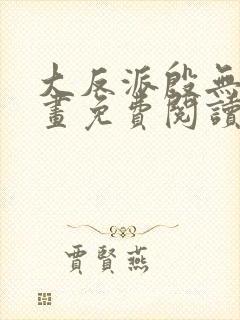 大反派殷無
畫免費閱讀
賈賢燕